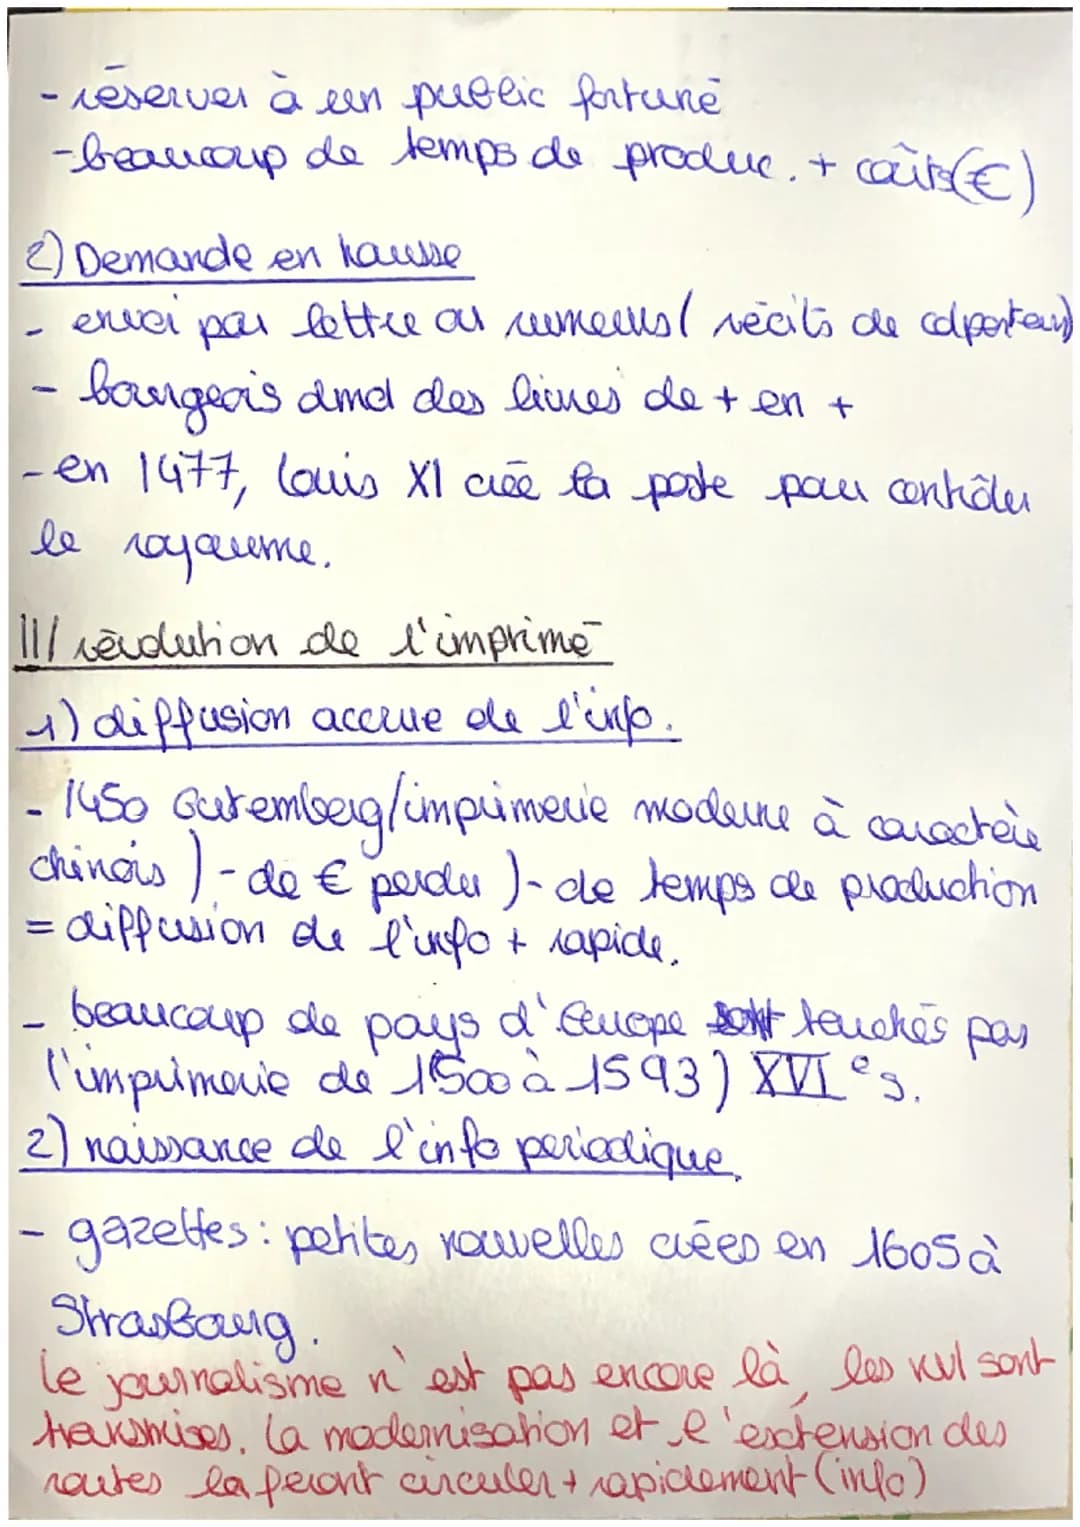 - réserver à un public fortuné
- beaucoup de temps de produc. + coûts(€)
2) Demande en hausse
- envoi par lettre ou rumeurs ( récits de colporteurs)
- bourgeois dmd des livres de + en +
- en 1477, Louis XI crée la poste pour contrôler
le royaume.
III/ révolution de l'imprimé
1) diffusion accrue de l'info.
- 1450 Gutemberg/imprimerie moderne à caractère
chinois ) - de € perdu ) - de temps de production
= diffusion de l'info + rapide.
- beaucoup de pays d'Europe sont touchés par
l'imprimerie de 1500 à 1593 ) XVIe s.
2) naissance de l'info periodique.
- gazettes : petites nouvelles créées en 1605 à
Strasbourg.
Le journalisme n'est pas encore là, les nvl sont
transmises. La modernisation et l'extension des
routes la feront circuler + rapidement (info)